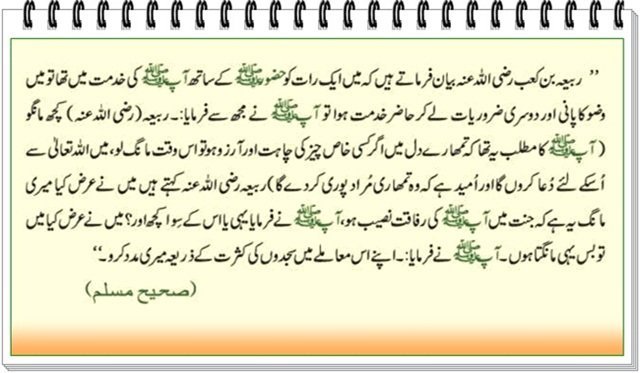 ’’ ربیعہ بن کعب رضی اللہ عنہ بیان فرماتے ہیں کہ میں ایک رات کو حضور ﷺ کے ساتھ آپ ﷺ کی خدمت میں تھا تو میں
وضو کا پانی اور دوسری ضروریات لے کر حاضر خدمت ہوا تو آپ ﷺ نے مجھ سے فرمایا:۔ ربیعہ (رضی اللہ عنہ) کچھ مانگو
(آپ ﷺ کا مطلب یہ تھا کہ تمھارے دل میں اگر کسی خاص چیز کی چاہت اور آرزو ہو تو اس وقت مانگ لو، میں اللہ تعالیٰ سے
اُسکے لئے دُعا کروں گا اور اُمید ہے کہ وہ تمھاری مُراد پوری کر دے گا) ربیعہ رضی اللہ عنہ کہتے ہیں میں نے عرض کیا میری
مانگ یہ ہے کہ جنت میں آپ ﷺ کی رفاقت نصیب ہو، آپ ﷺ نے فرمایا یہی یا اس کے سِوا کچھ اور؟ میں نے عرض کیا میں
تو بس یہی مانگتا ہوں۔ آپ ﷺ نے فرمایا:۔ اپنے اس معاملے میں سجدوں کی کثرت کے ذریعہ میری مدد کرو۔‘‘
(صحیح مسلم)